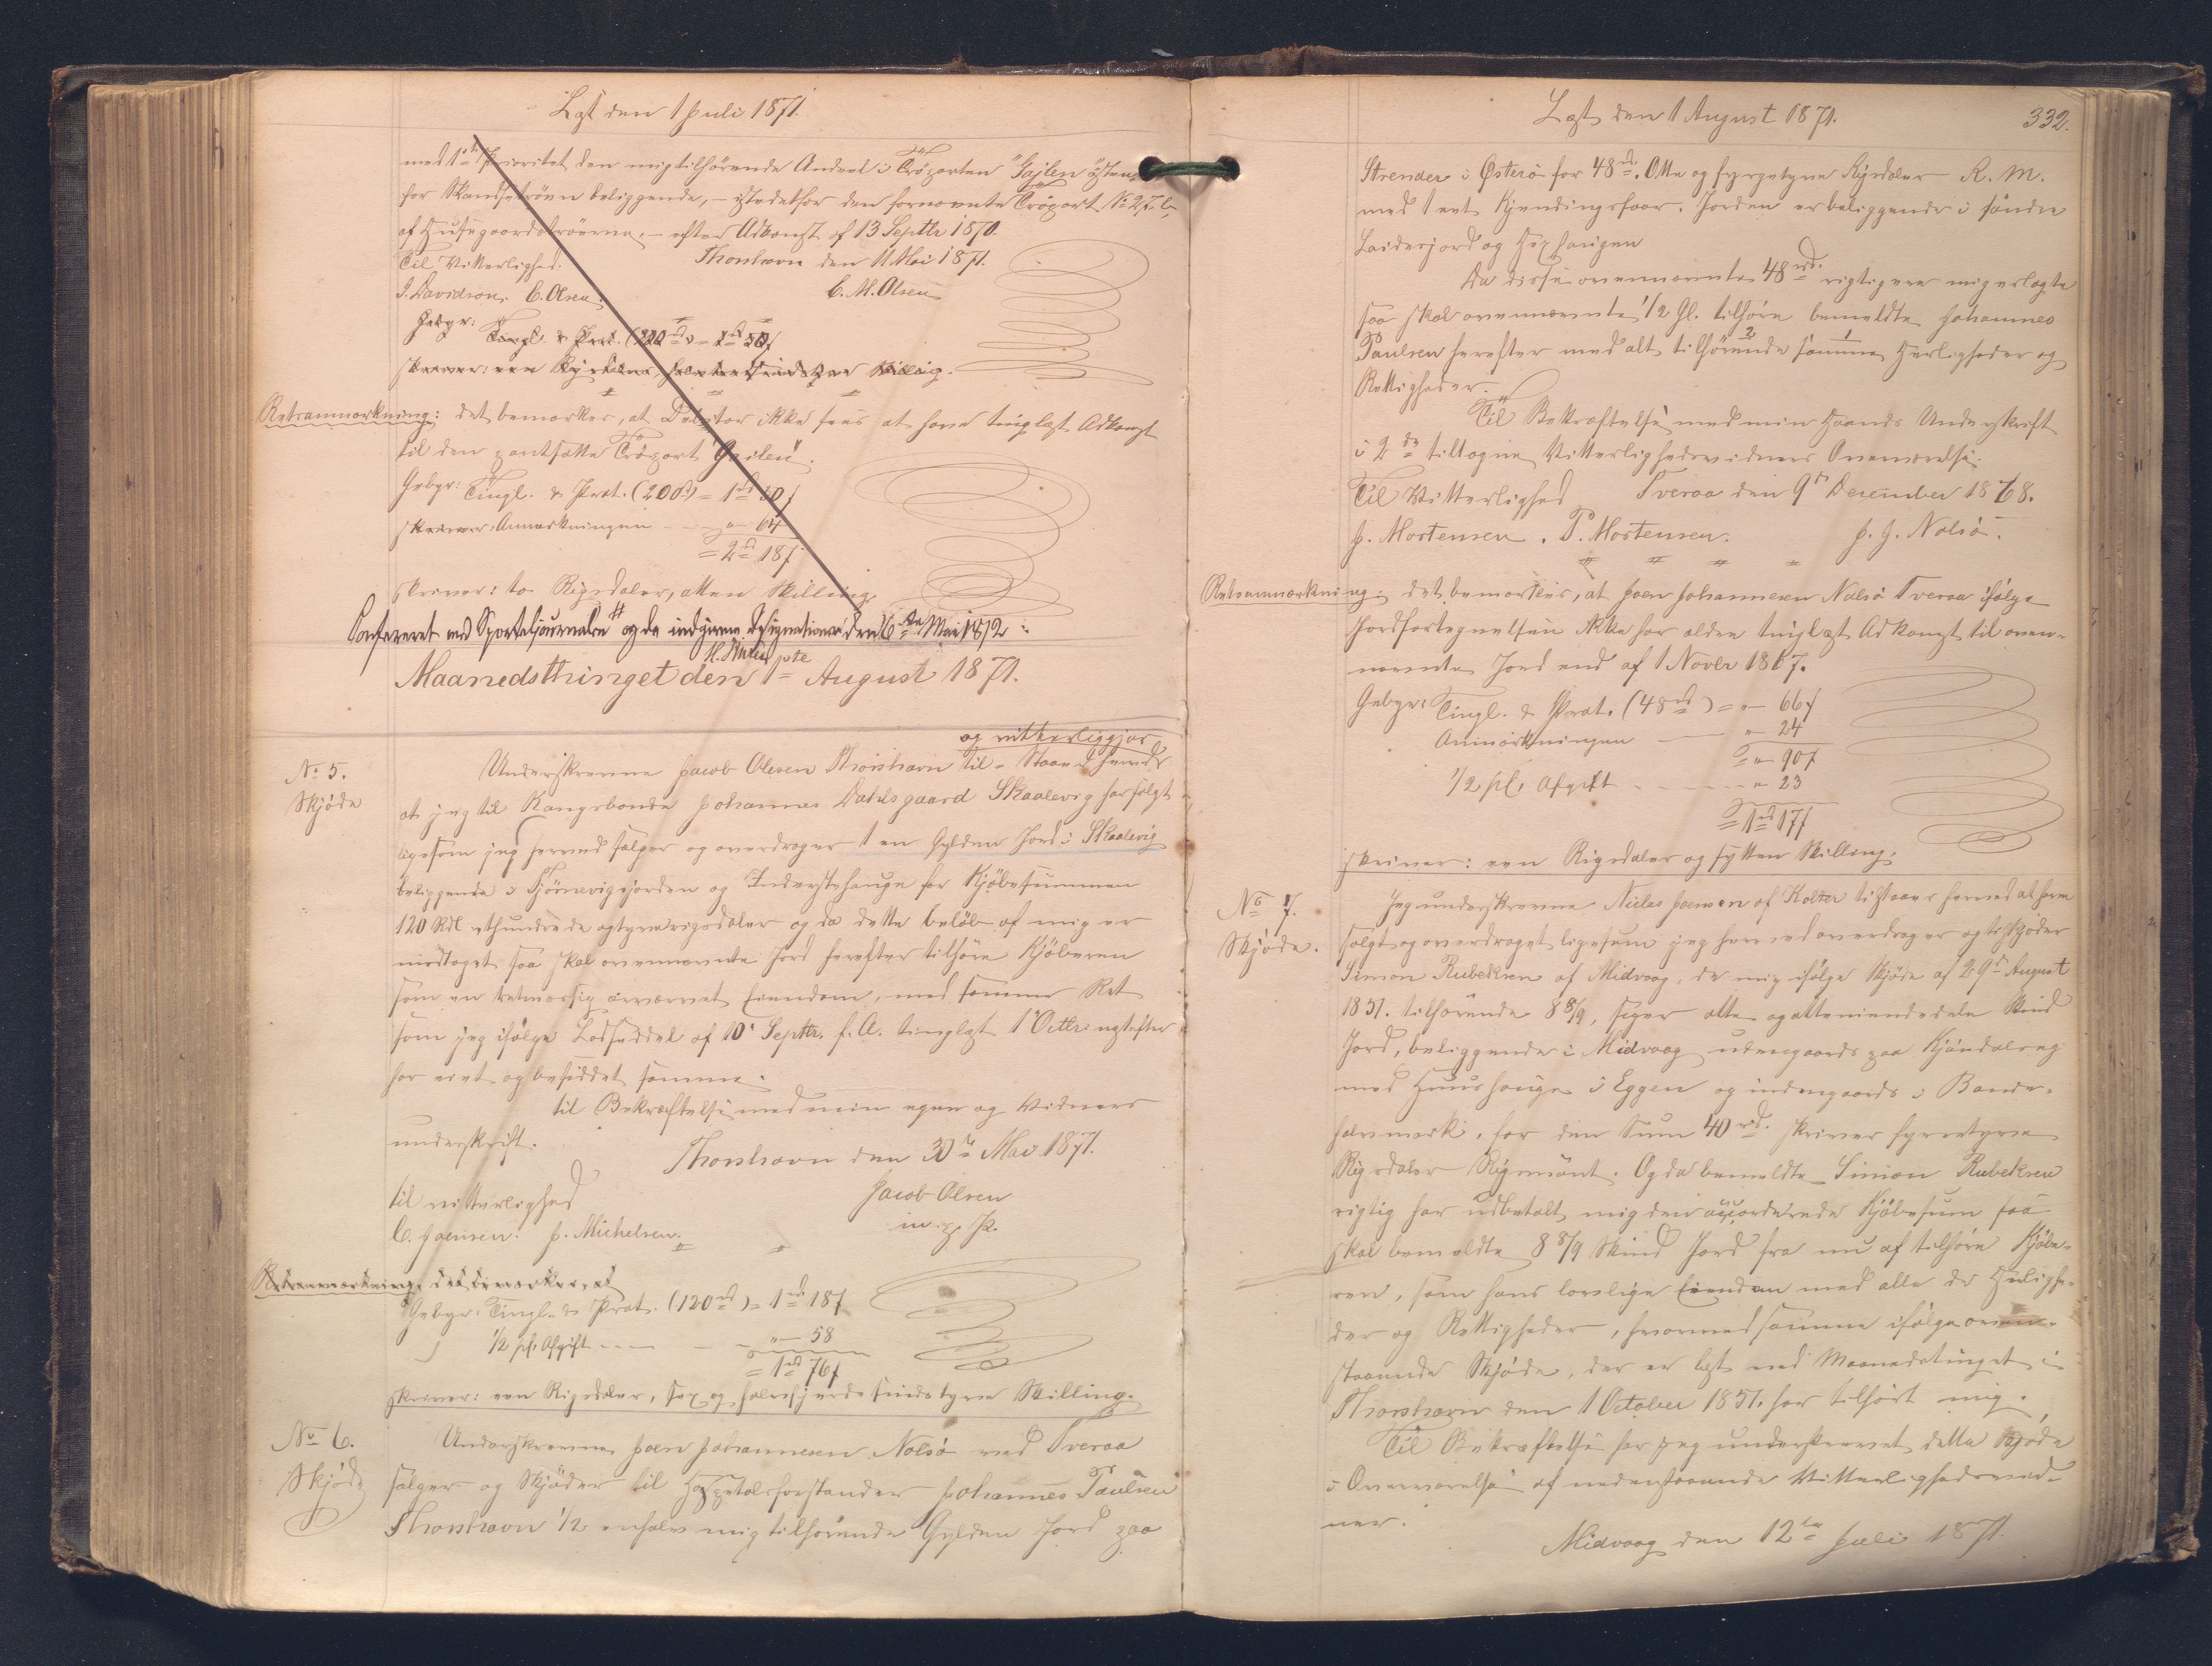 Læst den 1 Juli 1871.
med 1ste Prioritet den mig tilhørende Andeel i Tröparten "Gajlen" østen
for Skandsetröen beliggende, – istedetfor den fornævnte Tröpart № 2, L. C.
af Huusgaardströerne, – efter Adkomst af 13 Septbr 1870.
Til Vitterlighed: Thorshavn den 11 Mai 1871.
J. Davidson. C. Olsen. C. M. Olsen
Gebyr: Tingl. & Prot.
skriver: een Rigsdaler, Skilling.
Retsanmærkning: det bemærkes, at Debitor ikke sees at have tinglæst Adkomst
til den pantsatte Tröpart "Gajlen".
Gebyr: Tingl. & Prot. (200rd) = 1rd 50ß
skriver Anmærkningen – " 64
= 2rd 18ß
skriver: to Rigsdaler, atten Skilling.
Confereret med Sporteljournalen og da indgivne Designationer den 6te Mai 1872
H. Müller
Maanedsthinget den 1ste August 1871.
og vitterliggjør
№ 5. Underskrevne Jacob Olesen Thorshavn til-Staaer herved
Skjøde at jeg til Kongsbonde Johannes Dahlsgaard Skaalevig har solgt
ligesom jeg herved sælger og overdrager 1 en Gylden Jord i Skaalevig
beliggende i Tjørnevigsjorden og Inderstehauge for Kjøbesummen
120 Rdl ethundrede og tyve rigsdaler og da dette beløb af mig er
modtaget saa skal ovennævnte Jord herefter tilhøre Kjøberen
som en retmæssig erværvet Eiendom, med samme Ret
som jeg ifølge Lodseddel af 10' Septbr. f. A. tinglæst 1' Octbr næstefter
har eiet og besiddet samme.
til Bekræftelse med min egen og Vidners
underskrift.
Thorshavn den 30te Mai 1871.
til vitterlighed Jacob Olsen
C. Joensen. J. Michelsen. m. p. P.
Retsanmærkning: det bemærkes, at
Gebyr: Tingl. & Prot. (120rd) = 1rd 18ß
1/2 pCt. Afgift ---- " – 58
= 1rd 76ß
skriver: een Rigsdaler, sex og halvfjerdesindstyve Skilling.
№ 6. Underskrevne Joen Johannesen Nolsö ved Tveraa
Skjøde sælger og skjøder til Hospitalsforstander Johannes Paulsen
Thorshavn 1/2 en halv mig tilhørende Gylden Jord paa
Læst den 1 August 1871. 332.
Strender i Østerø for 48rd. Otte og fyrgetyve Rigsdaler R. M.
med 1 eet Kjendingsfaar. Jorden er beliggende i søndre
Da disse ovennævnte 48rd. rigtig ere mig erlagte
saa skal ovennævnte 1/2 Gl. tilhøre bemeldte Johannes
Paulsen herefter med alt tilhørende samme Herligheder og
Rettigheder.
Til Bekræftelse med min Haands Underskrift
i 2de tiltagne Vitterlighedsvidners Overværelse.
Til Vitterlighed Tveraa den 9de December 1868.
J. Mortensen. P. Mortensen. J. J. Nolsö.
Retsanmærkning: det bemærkes, at Joen Johannesen Nolsö Tveraa ifølge
Jordfortegnelsen ikke har ældre tinglæst Adkomst til oven-
nævnte Jord end af 1 Novbr 1867.
Gebyr: Tingl. & Prot. (48rd) = " – 66ß
Anmærkningen – " – 24
= " – 90ß
1/2 pCt. Afgift ----- " 23
= 1rd 17ß
skriver: een Rigsdaler og sytten Skilling.
№ 7. Jeg underskrevne Niclas Joensen af Kolter tilstaaer herved at have
Skjøde. solgt og overdraget ligesom jeg herved overdrager og tilskjøder
Simon Rubeksen af Midvaag, de mig ifølge Skjøde af 29de August
1851. tilhørende 8 8/9, siger otte og otteniendedele Skind
Jord, beliggende i Midvaag udengaards paa
med Huushauge i Eggen og indengaards i Bønde-
halvmark, for den Sum 40rd. skriver fyrretyve
Rigsdaler Rigsmönt. Og da bemeldte Simon Rubeksen
rigtig har udbetalt mig den accorderede Kjøbesum saa
skal bemeldte 8 8/9 Skind Jord fra nu af tilhøre Kjøbe-
ren, som hans lovlige Eiendom med alle de Herlighe-
der og Rettigheder, hvormed samme ifølge oven-
staaende Skjøde, der er læst ved Maanedstinget i
Thorshavn den 1 October 1851. har tilhørt mig.
Til Bekræftelse har jeg underskrevet dette Skjøde
i Overværelse af nedenstaaende Vitterlighedsvid-
ner.
Midvaag den 12te Juli 1871.